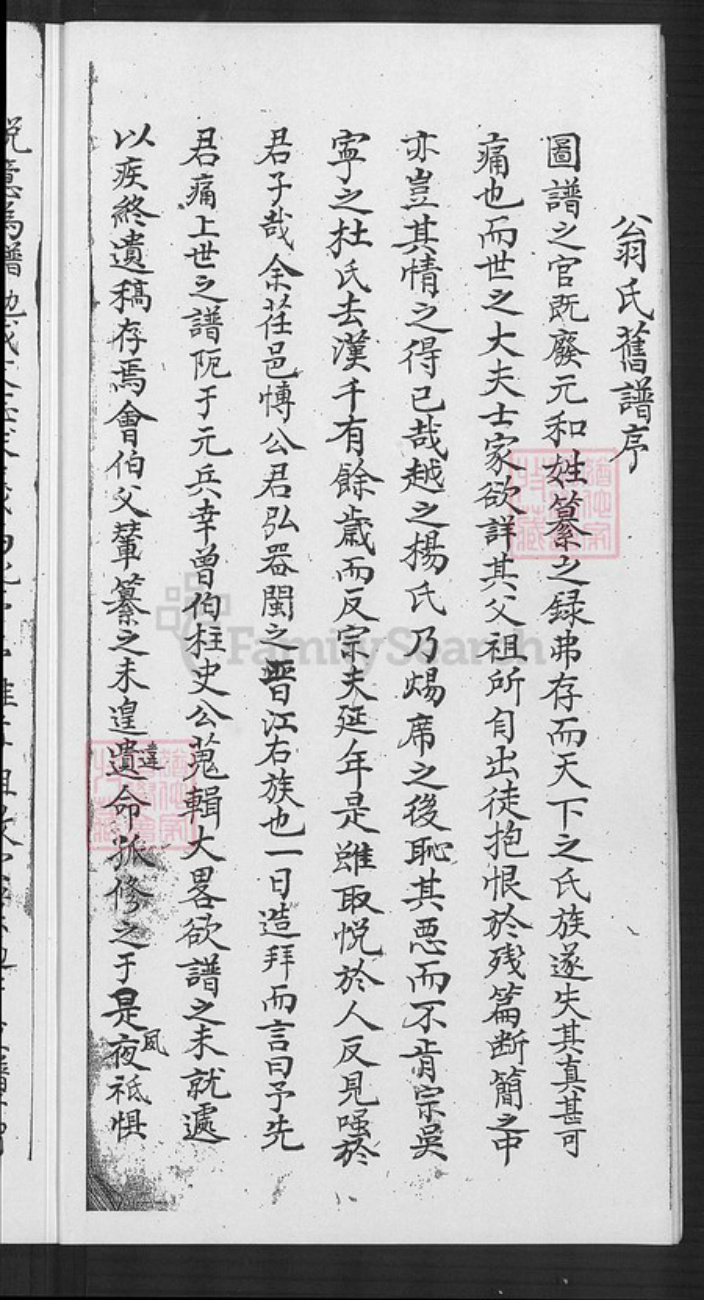 翁氏舊譜序
圖譜之官既廢元和姓纂之録弗存而天下之氏族遂失其真甚可
痛也而世之大夫士家欲詳其父祖所自出徒抱恨於残篇断簡之中
亦豈其情之得已哉越之楊氏乃煬席之後恥其悪而不肯宗吳
寧之杜氏去漢千有餘歲而反宗夫延年是雖取悅於人反見嗤於
君子哉余莅邑愽公君弘器閩之晉江右族也一日造拜而言曰予先
君痛上世之譜阨于元兵幸曾伯柱史公蒐輯大畧欲譜之未就遽
以疾終遺稿存焉會伯父輩纂之未遑遺命孤修之于是夜祗惧
違
夙
FamilySearch